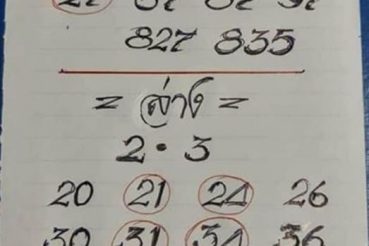 827 835
= ล่าง =
2 · 3
20 21 24 26
30 31 34 36